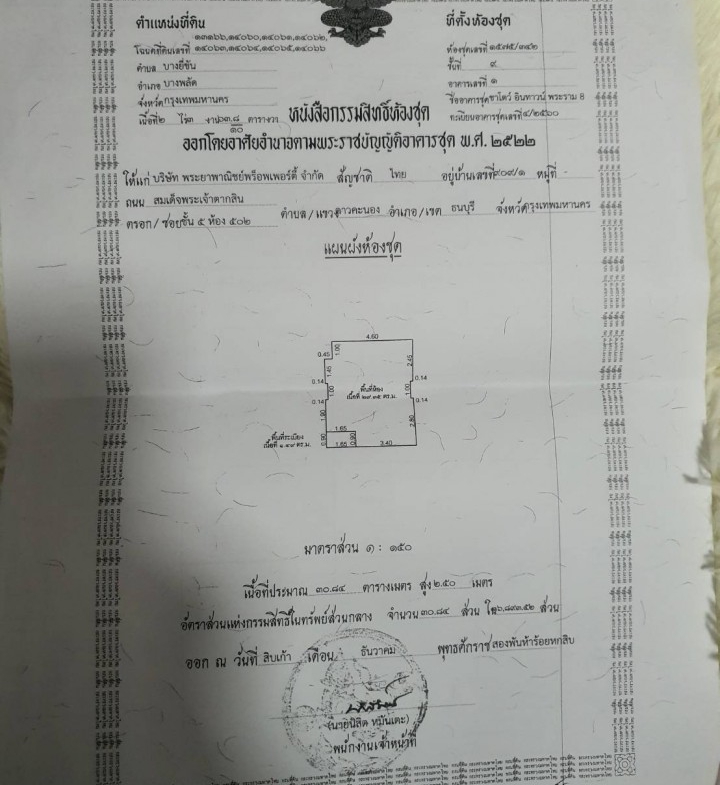 ตำแหน่งที่ดิน
๑๓๑๖๖,๑๔๐๖๐,๑๔๐๖๑,๑๔๐๖๒,
โฉนดที่ดินเลขที่ ๑๔๐๖๓,๑๔๐๖๔,๑๔๐๖๕,๑๔๐๖๖
ตำบล บางยี่ขัน
อำเภอ บางพลัด
จังหวัด กรุงเทพมหานคร
เนื้อที่ ๒ ไร่ ๓ งาน ๖๓.๘/๑๐ ตารางวา
ที่ตั้งห้องชุด
ห้องชุดเลขที่ ๑๕๗๕/๓๔๒
ชั้นที่ ๙
อาคารเลขที่ ๑
ชื่ออาคารชุด ชาโตว์ อินทาวน์ พระราม 8
ทะเบียนอาคารชุดเลขที่ ๔/๒๕๖๐
หนังสือกรรมสิทธิ์ห้องชุด
ออกโดยอาศัยอำนาจตามพระราชบัญญัติอาคารชุด พ.ศ. ๒๕๒๒
ให้แก่ บริษัท พระยาพาณิชย์พร็อพเพอร์ตี้ จำกัด สัญชาติ ไทย อยู่บ้านเลขที่ ๙๐๙/๑ หมู่ที่ -
ถนน สมเด็จพระเจ้าตากสิน
ตรอก/ซอย ชั้น ๕ ห้อง ๕๐๒ ตำบล/แขวง ดาวคะนอง อำเภอ/เขต ธนบุรี จังหวัด กรุงเทพมหานคร
แผนผังห้องชุด
4.60
0.45
1.00
1.45
2.45
0.14
0.14
1.00
1.00
พื้นที่ห้อง
เนื้อที่ ๒๙.๓๕ ตร.ม.
0.14
0.14
1.90
2.80
1.65
พื้นที่ระเบียง
เนื้อที่ ๑.๔๙ ตร.ม.
0.90
0.90
1.65
3.40
มาตราส่วน ๑ : ๑๕๐
เนื้อที่ประมาณ ๓๐.๘๔ ตารางเมตร สูง ๒.๕๐ เมตร
อัตราส่วนแห่งกรรมสิทธิ์ในทรัพย์ส่วนกลาง จำนวน ๓๐.๘๔ ส่วน ใน ๖,๘๙๓.๕๒ ส่วน
ออก ณ วันที่ สิบเก้า เดือน ธันวาคม พุทธศักราช สองพันห้าร้อยหกสิบ
(นายนิสิต หมันเตะ)
พนักงานเจ้าหน้าที่